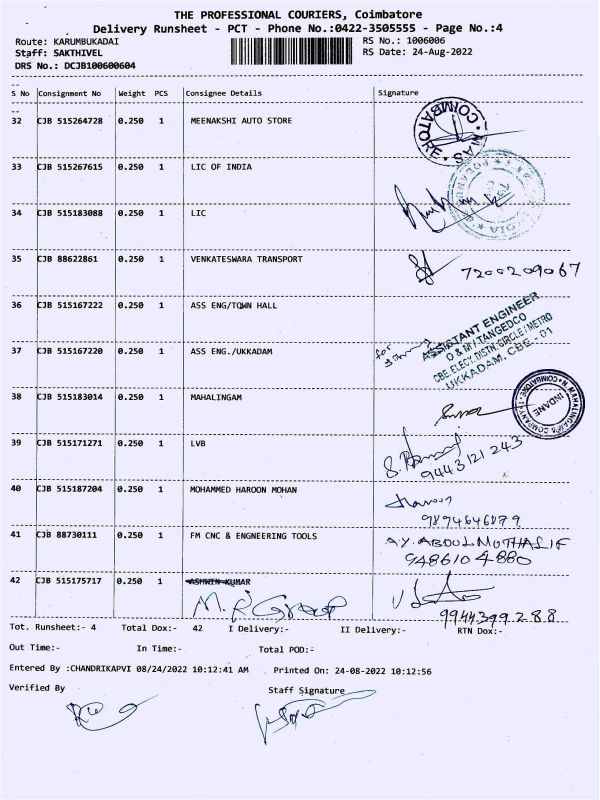 THE PROFESSIONAL COURIERS, Coimbatore
Delivery Runsheet - PCT - Phone No.:0422-3505555 - Page No.:4
Route: KARUMBUKADAI RS No.: 1006006
Staff: SAKTHIVEL RS Date: 24-Aug-2022
DRS No.: DCJB100600604
S No Consignment No Weight PCS Consignee Details Signature
32 CJB 515264728 0.250 1 MEENAKSHI AUTO STORE
COIMBATORE
33 CJB 515267615 0.250 1 LIC OF INDIA
34 CJB 515183088 0.250 1 LIC
35 CJB 88622861 0.250 1 VENKATESWARA TRANSPORT 7200209067
36 CJB 515167222 0.250 1 ASS ENG/TOWN HALL
for
ASSISTANT ENGINEER
O & M / TANGEDCO
CBE. ELECY. DISTN. CIRCLE / METRO
UKKADAM, CBE - 01
37 CJB 515167220 0.250 1 ASS ENG./UKKADAM
38 CJB 515183014 0.250 1 MAHALINGAM
INDANE
39 CJB 515171271 0.250 1 LVB
9443121243
40 CJB 515187204 0.250 1 MOHAMMED HAROON MOHAN
Haroon
9894646879
41 CJB 88730111 0.250 1 FM CNC & ENGNEERING TOOLS A.Y. ABDUL MUTHALIF
9486104880
42 CJB 515175717 0.250 1 ASHWIN KUMAR
M.R Group
9944399288
Tot. Runsheet:- 4 Total Dox:- 42 I Delivery:- II Delivery:- RTN Dox:-
Out Time:- In Time:- Total POD:-
Entered By :CHANDRIKAPVI 08/24/2022 10:12:41 AM Printed On: 24-08-2022 10:12:56
Verified By Staff Signature